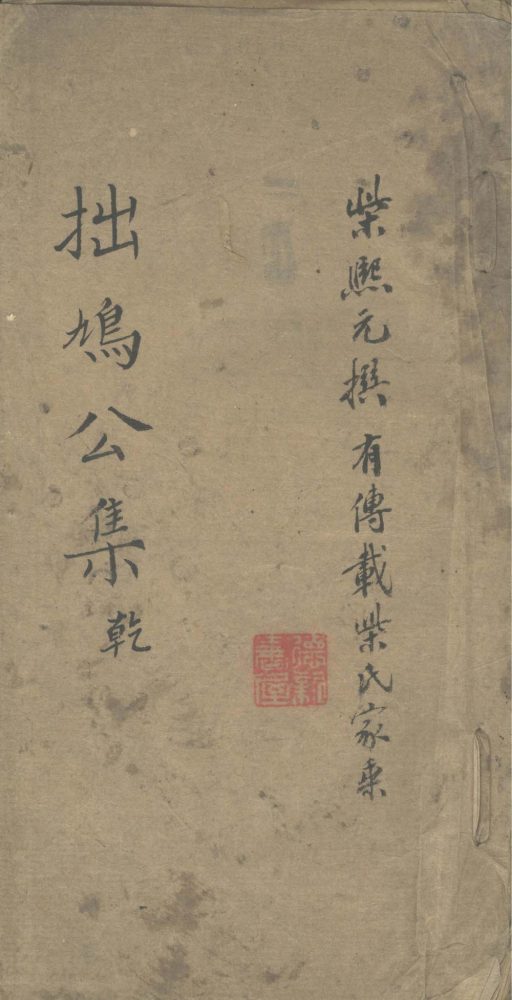 柴熙元撰 有傳載柴氏家乘
拙鳩公集 乾